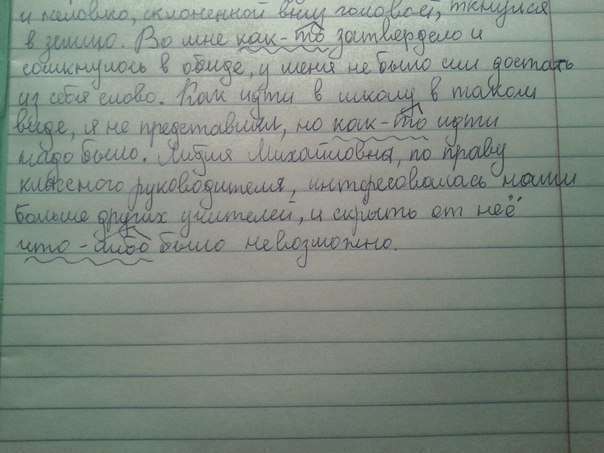 и неловко, склоненной вниз головой, ткнулся
в землю. Во мне как-то затвердело и
сомкнулось в обиде, у меня не было сил достать
из себя слово. Как идти в школу в таком
виде, я не представлял, но как-то идти
надо было. Лидия Михайловна, по праву
классного руководителя, интересовалась нами
больше других учителей, и скрыть от неё
что-либо было невозможно.